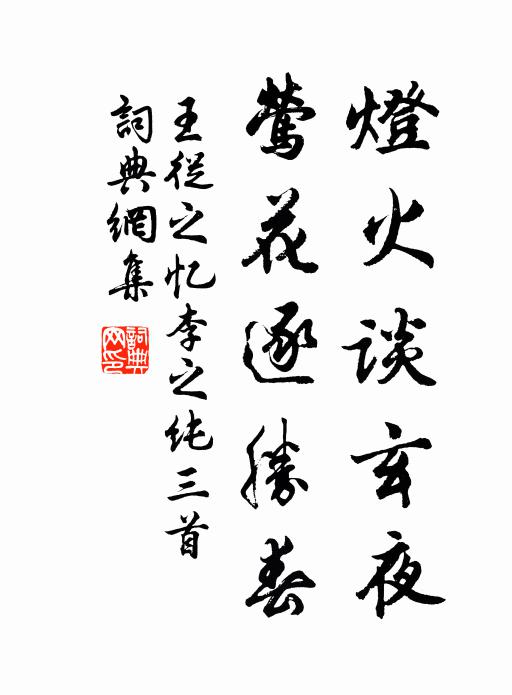 燈火談玄夜
鶯花逐勝春
王從之忆李之纯三首
詞典網集
詞典網印